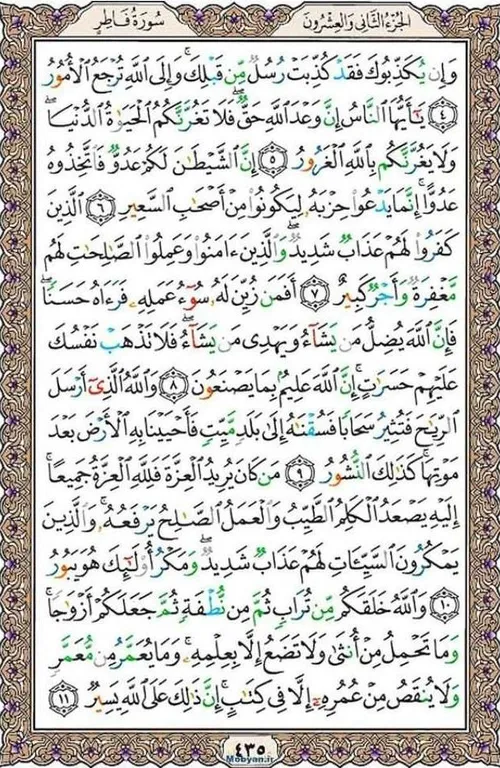 سُورَةُ فَاطِرٍ
الجُزءُ الثَّانِى وَالعِشْرُونَ
وَإِن يُكَذِّبُوكَ فَقَدْ كُذِّبَتْ رُسُلٌ مِّن قَبْلِكَ ۚ وَإِلَى اللَّهِ تُرْجَعُ الْأُمُورُ
﴿٤﴾ يَا أَيُّهَا النَّاسُ إِنَّ وَعْدَ اللَّهِ حَقٌّ ۖ فَلَا تَغُرَّنَّكُمُ الْحَيَوٰةُ الدُّنْيَا ۖ
وَلَا يَغُرَّنَّكُم بِاللَّهِ الْغَرُورُ ﴿٥﴾ إِنَّ الشَّيْطَٰنَ لَكُمْ عَدُوٌّ فَاتَّخِذُوهُ
عَدُوًّا ۚ إِنَّمَا يَدْعُوا حِزْبَهُ لِيَكُونُوا مِنْ أَصْحَٰبِ السَّعِيرِ ﴿٦﴾ الَّذِينَ
كَفَرُوا لَهُمْ عَذَابٌ شَدِيدٌ ۖ وَالَّذِينَ ءَامَنُوا وَعَمِلُوا الصَّٰلِحَٰتِ لَهُم
مَّغْفِرَةٌ وَأَجْرٌ كَبِيرٌ ﴿٧﴾ أَفَمَن زُيِّنَ لَهُ سُوٓءُ عَمَلِهِ فَرَءَاهُ حَسَنًا ۖ
فَإِنَّ اللَّهَ يُضِلُّ مَن يَشَآءُ وَيَهْدِى مَن يَشَآءُ ۖ فَلَا تَذْهَبْ نَفْسُكَ
عَلَيْهِمْ حَسَرَٰتٍ ۚ إِنَّ اللَّهَ عَلِيمٌ بِمَا يَصْنَعُونَ ﴿٨﴾ وَاللَّهُ الَّذِىٓ أَرْسَلَ
الرِّيَٰحَ فَتُثِيرُ سَحَابًا فَسُقْنَٰهُ إِلَىٰ بَلَدٍ مَّيِّتٍ فَأَحْيَيْنَا بِهِ الْأَرْضَ بَعْدَ
مَوْتِهَا ۚ كَذَٰلِكَ النُّشُورُ ﴿٩﴾ مَن كَانَ يُرِيدُ الْعِزَّةَ فَلِلَّهِ الْعِزَّةُ جَمِيعًا ۚ
إِلَيْهِ يَصْعَدُ الْكَلِمُ الطَّيِّبُ وَالْعَمَلُ الصَّٰلِحُ يَرْفَعُهُ ۚ وَالَّذِينَ
يَمْكُرُونَ السَّيِّئَاتِ لَهُمْ عَذَابٌ شَدِيدٌ ۖ وَمَكْرُ أُولَٰٓئِكَ هُوَ يَبُورُ
﴿١٠﴾ وَاللَّهُ خَلَقَكُم مِّن تُرَابٍ ثُمَّ مِن نُّطْفَةٍ ثُمَّ جَعَلَكُمْ أَزْوَٰجًا ۚ
وَمَا تَحْمِلُ مِنْ أُنثَىٰ وَلَا تَضَعُ إِلَّا بِعِلْمِهِ ۚ وَمَا يُعَمَّرُ مِن مُّعَمَّرٍ
وَلَا يُنقَصُ مِنْ عُمُرِهِ إِلَّا فِى كِتَٰبٍ ۚ إِنَّ ذَٰلِكَ عَلَى اللَّهِ يَسِيرٌ ﴿١١﴾
٤٣٥
Mobyan.ir